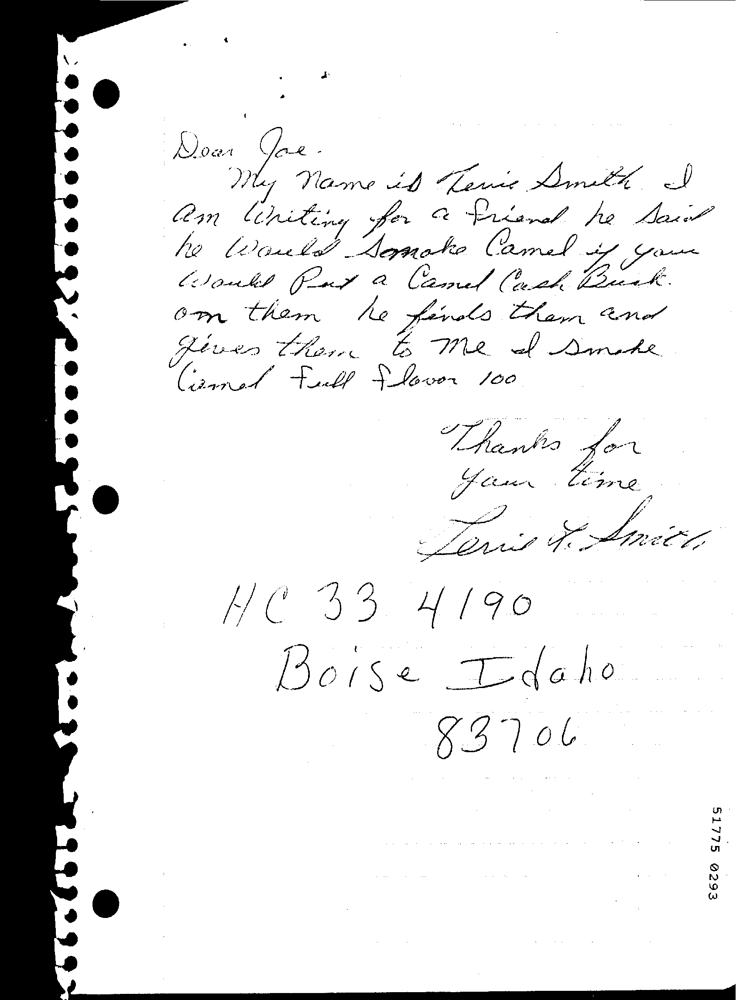 Dear Joe.
My name is Terrie Smith I
am Writing for a friend he said
he Would Somoke Camel if your
Would Put a Camel Cash Buck.
om them he finds them and
gives them to me I Smoke
Camel Full Flavor 100
Thanks for
your time
Terrie L. Smith
HC 33 4190
Boise Idaho
83706
51775 0293